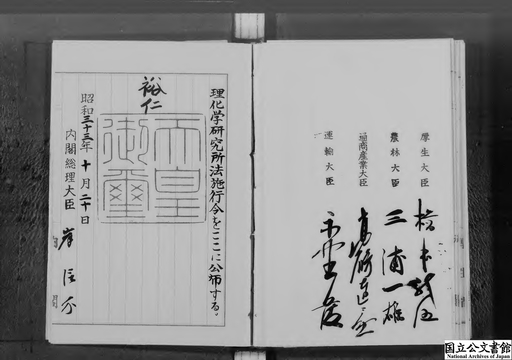 理化学研究所法施行令をここに公布する。
裕仁
天皇
御璽
昭和三十三年十月二十日
内閣総理大臣 岸信介
厚生大臣 橋本龍伍
農林大臣 三浦一雄
通商産業大臣 高碕達之助
運輸大臣 永野護
国立公文書館
National Archives of Japan